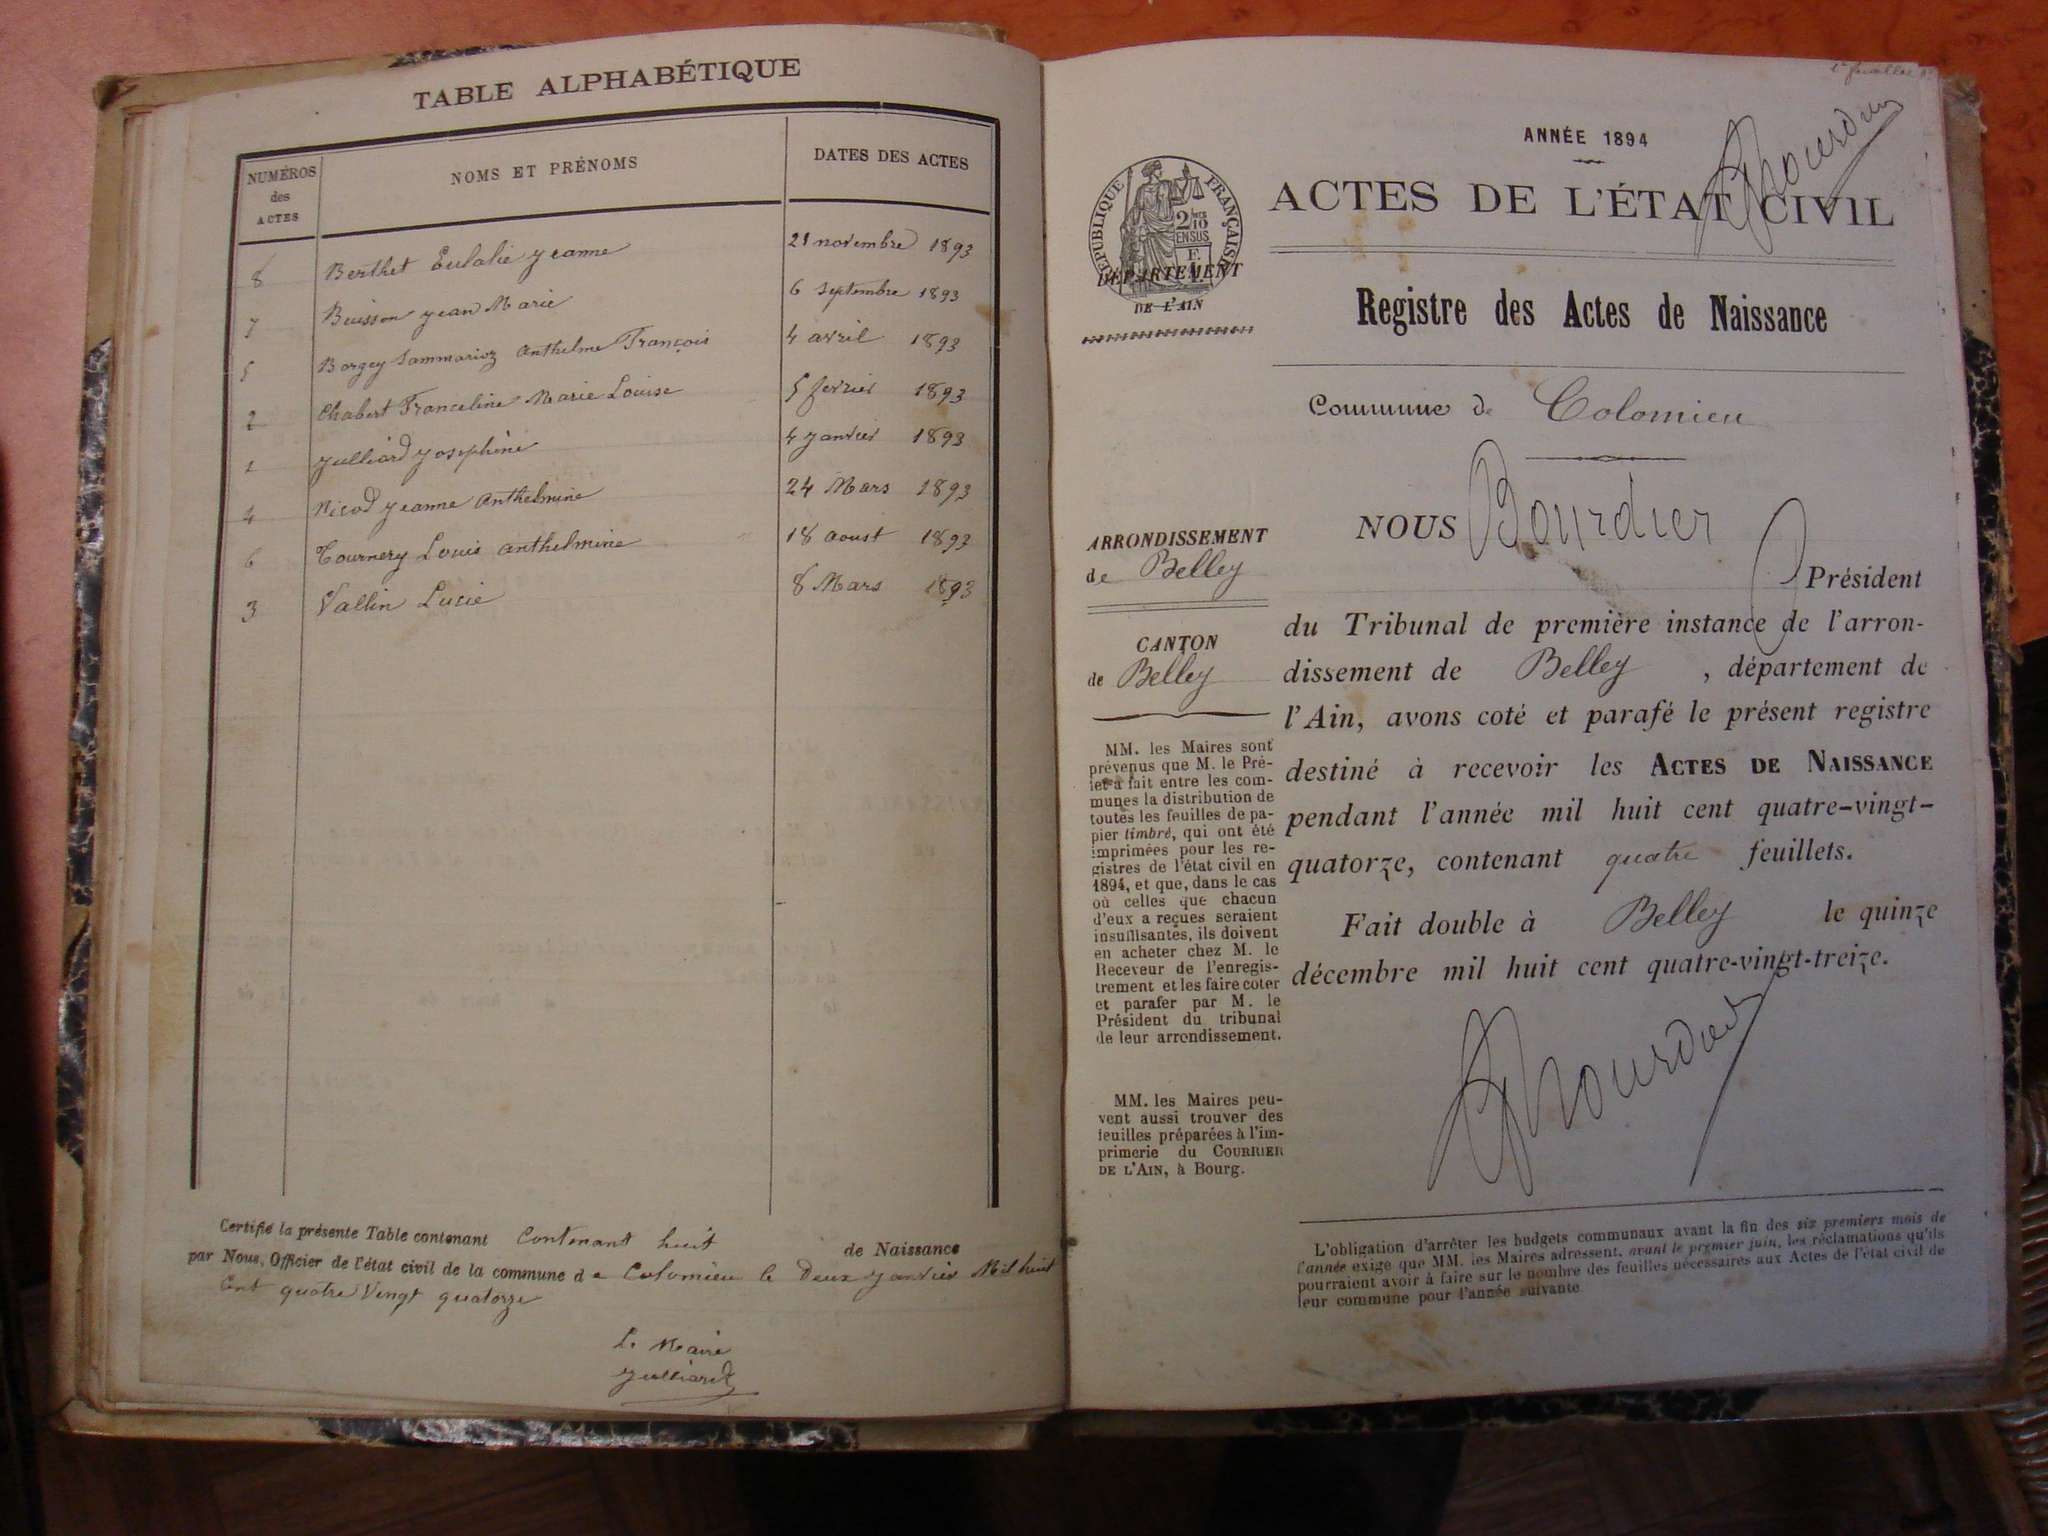 TABLE ALPHABÉTIQUE
NUMÉROS des ACTES
NOMS ET PRÉNOMS
DATES DES ACTES
8 Berthet Eulalie Jeanne 21 novembre 1893
7 Buisson Jean Marie 6 septembre 1893
5 Borgey Sammarioz Anthelme François 4 avril 1893
2 Chabert Franceline Marie Louise 5 fevrier 1893
1 Julliard Josephine 4 Janvier 1893
4 Nicod Jeanne Anthelmine 24 Mars 1893
6 Tournery Louis Anthelmine 18 aoust 1893
3 Vallin Lucie 8 Mars 1893
Certifié la présente Table contenant Contenant huit de Naissance
par Nous, Officier de l'état civil de la commune de Colomieu le Deux Janvier Mil huit
Cent quatre Vingt quatorze
Le Maire
Julliard
ANNÉE 1894
ACTES DE L'ÉTAT CIVIL
RÉPUBLIQUE FRANÇAISE
2/10 EN SUS
DÉPARTEMENT
DE L'AIN
Registre des Actes de Naissance
Commune de Colomieu
ARRONDISSEMENT
de Belley
CANTON
de Belley
MM. les Maires sont
prévenus que M. le Pré-
fet a fait entre les com-
munes la distribution de
toutes les feuilles de pa-
pier timbré, qui ont été
imprimées pour les re-
gistres de l'état civil en
1894, et que, dans le cas
où celles que chacun
d'eux a reçues seraient
insuffisantes, ils doivent
en acheter chez M. le
Receveur de l'enregis-
trement et les faire coter
et parafer par M. le
Président du tribunal
de leur arrondissement.
MM. les Maires peu-
vent aussi trouver des
feuilles préparées à l'im-
primerie du COURRIER
DE L'AIN, à Bourg.
NOUS Bourdier
Président
du Tribunal de première instance de l'arron-
dissement de Belley, département de
l'Ain, avons coté et parafé le présent registre
destiné à recevoir les ACTES DE NAISSANCE
pendant l'année mil huit cent quatre-vingt-
quatorze, contenant quatre feuillets.
Fait double à Belley le quinze
décembre mil huit cent quatre-vingt-treize.
L'obligation d'arrêter les budgets communaux avant la fin des six premiers mois de
l'année exige que MM. les Maires adressent, avant le premier juin, les réclamations qu'ils
pourraient avoir à faire sur le nombre des feuilles nécessaires aux Actes de l'état civil de
leur commune pour l'année suivante